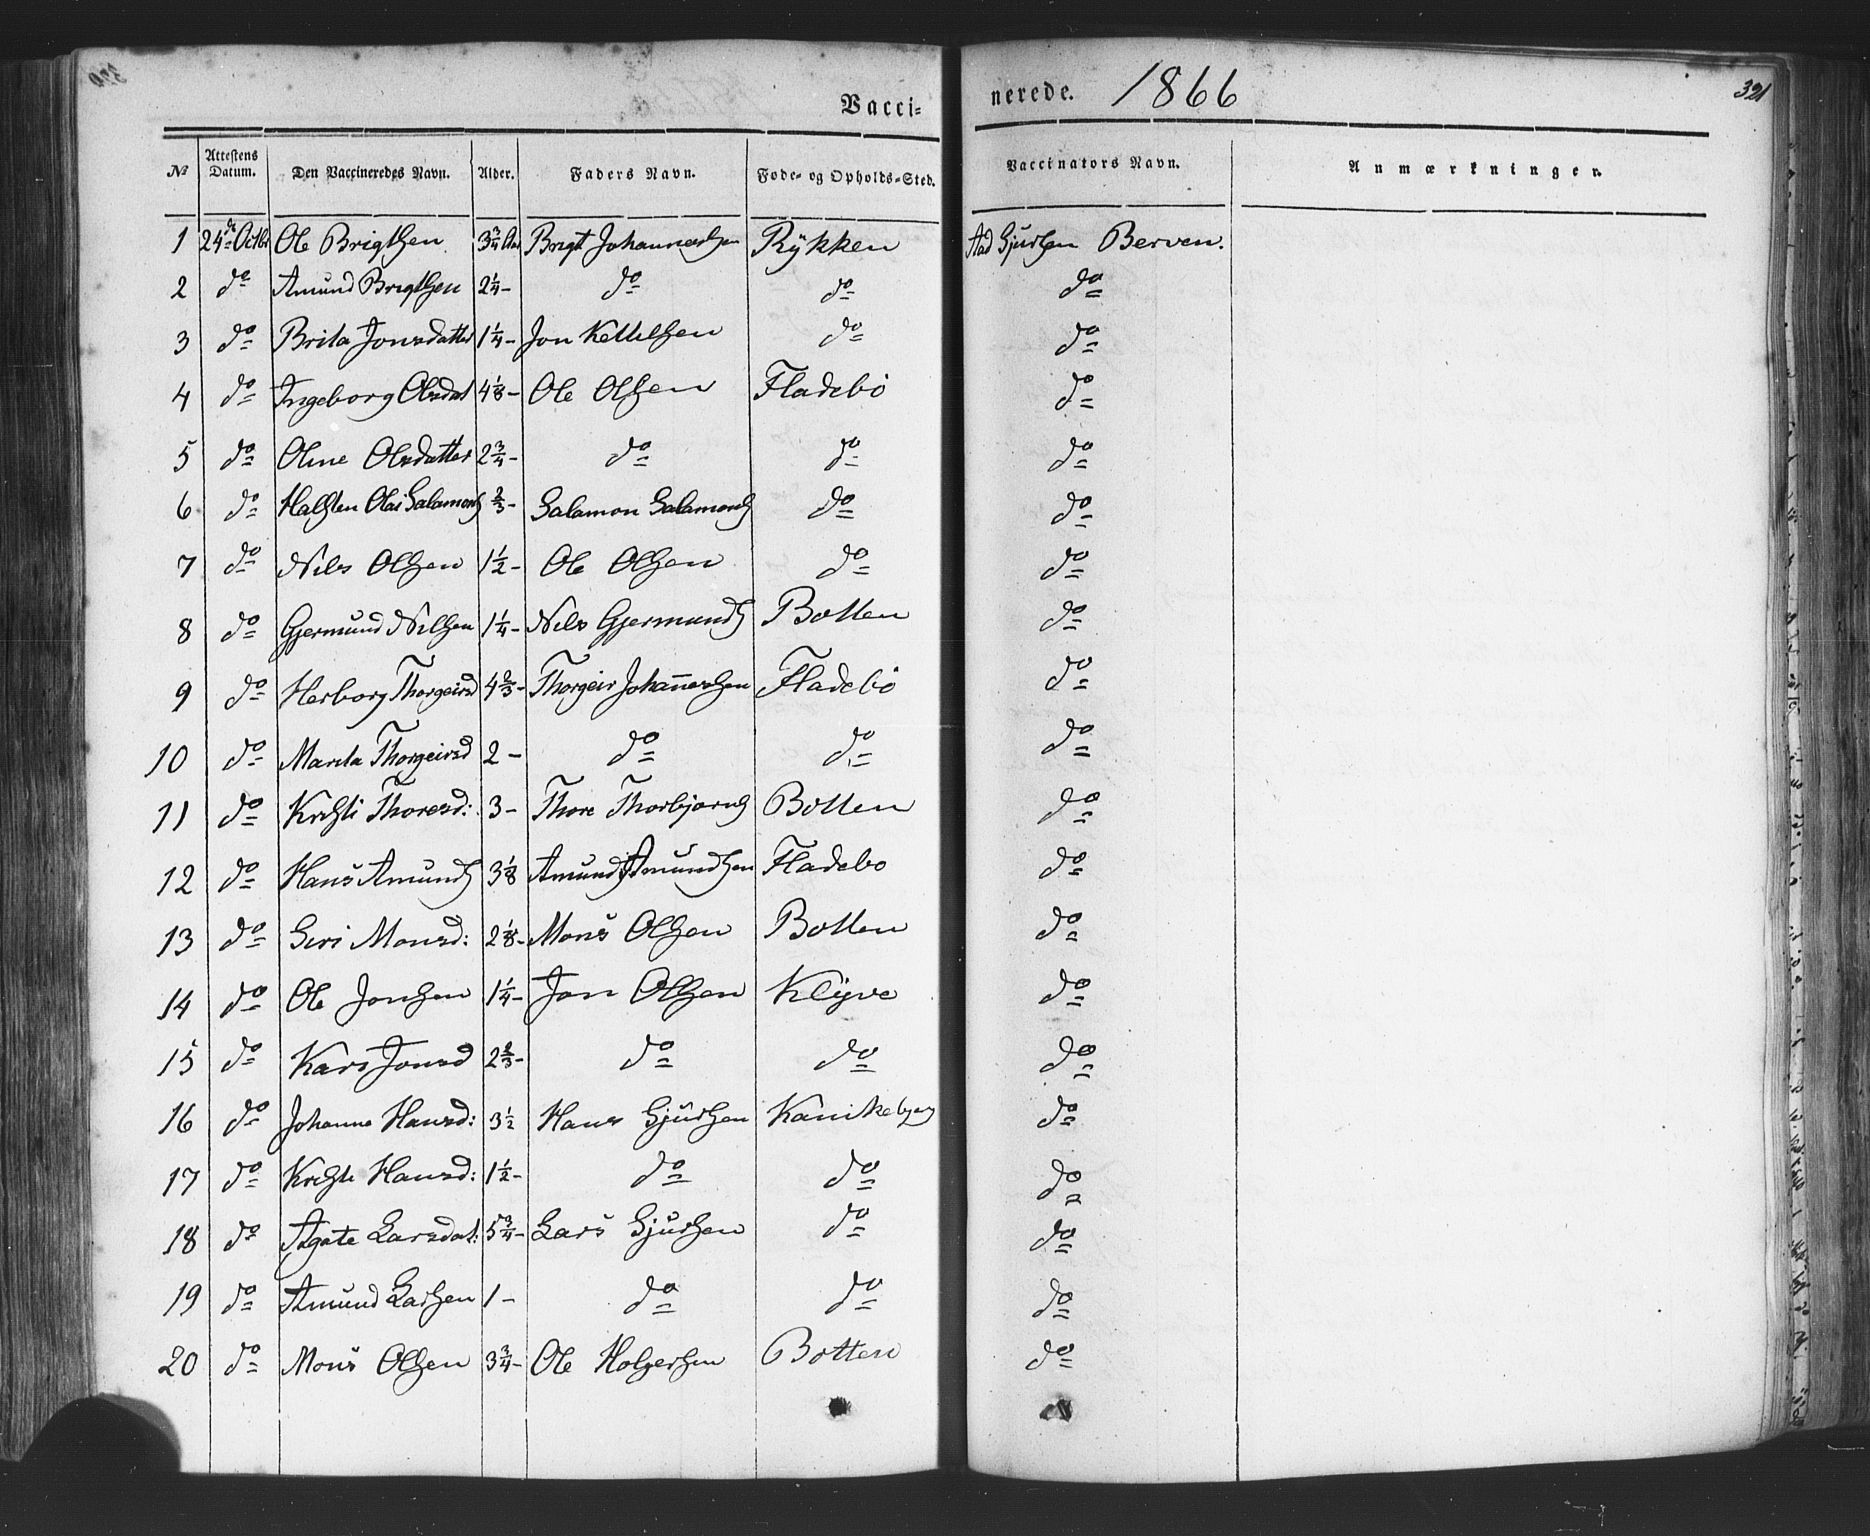 Vacci- nerede. 1866 321
№ Attestens Datum. Den Vaccineredes Navn. Alder. Faders Navn. Føde- og Opholds-Sted. Vaccinators Navn. Anmærkninger.
1 24de Octbr Ole Brigthsen 3 3/4 Aar Brigt Johannessen Rÿkken Aad Sjursen Berven.
2 do Amund Brigthsen 2 1/4 - do do do
3 do Brita Jonsdatter 1 1/4 - Jon Kettelsen do do
4 do Ingeborg Olsdat 4 1/8 - Ole Olsen Fladebø do
5 do Oline Olsdatter 2 3/4 - do do do
6 do Halsten Olai Salamons 2/3 - Salamon Salamons do do
7 do Nils Olsen 1 1/2 - Ole Olsen do do
8 do Gjermund Nilsen 1 1/4 - Nils Gjermunds Botten do
9 do Herborg Thorgeirsd 4 2/3 - Thorgeir Johannessen Fladebø do
10 do Marita Thorgeirsd 2 - do do do
11 do Kristi Thoresd: 3 - Thore Thorbjørns Botten do
12 do Hans Amunds 3 1/8 Amund Amundsen Fladebø do
13 do Siri Monsd: 2 1/8 - Mons Olsen Botten do
14 do Ole Jonsen 1 1/4 - Jon Olsen Klÿve do
15 do Kari Jonsd 2 2/3 - do do do
16 do Johanna Hansd: 3 1/2 Hans Sjursen Kanikebjerg do
17 do Kriste Hansd: 1 1/2 - do do do
18 do Agate Larsdat: 5 3/4 - Lars Sjursen do do
19 do Amund Larsen 1 - do do do
20 do Mons Olsen 3 3/4 - Ole Holgersen Botten do